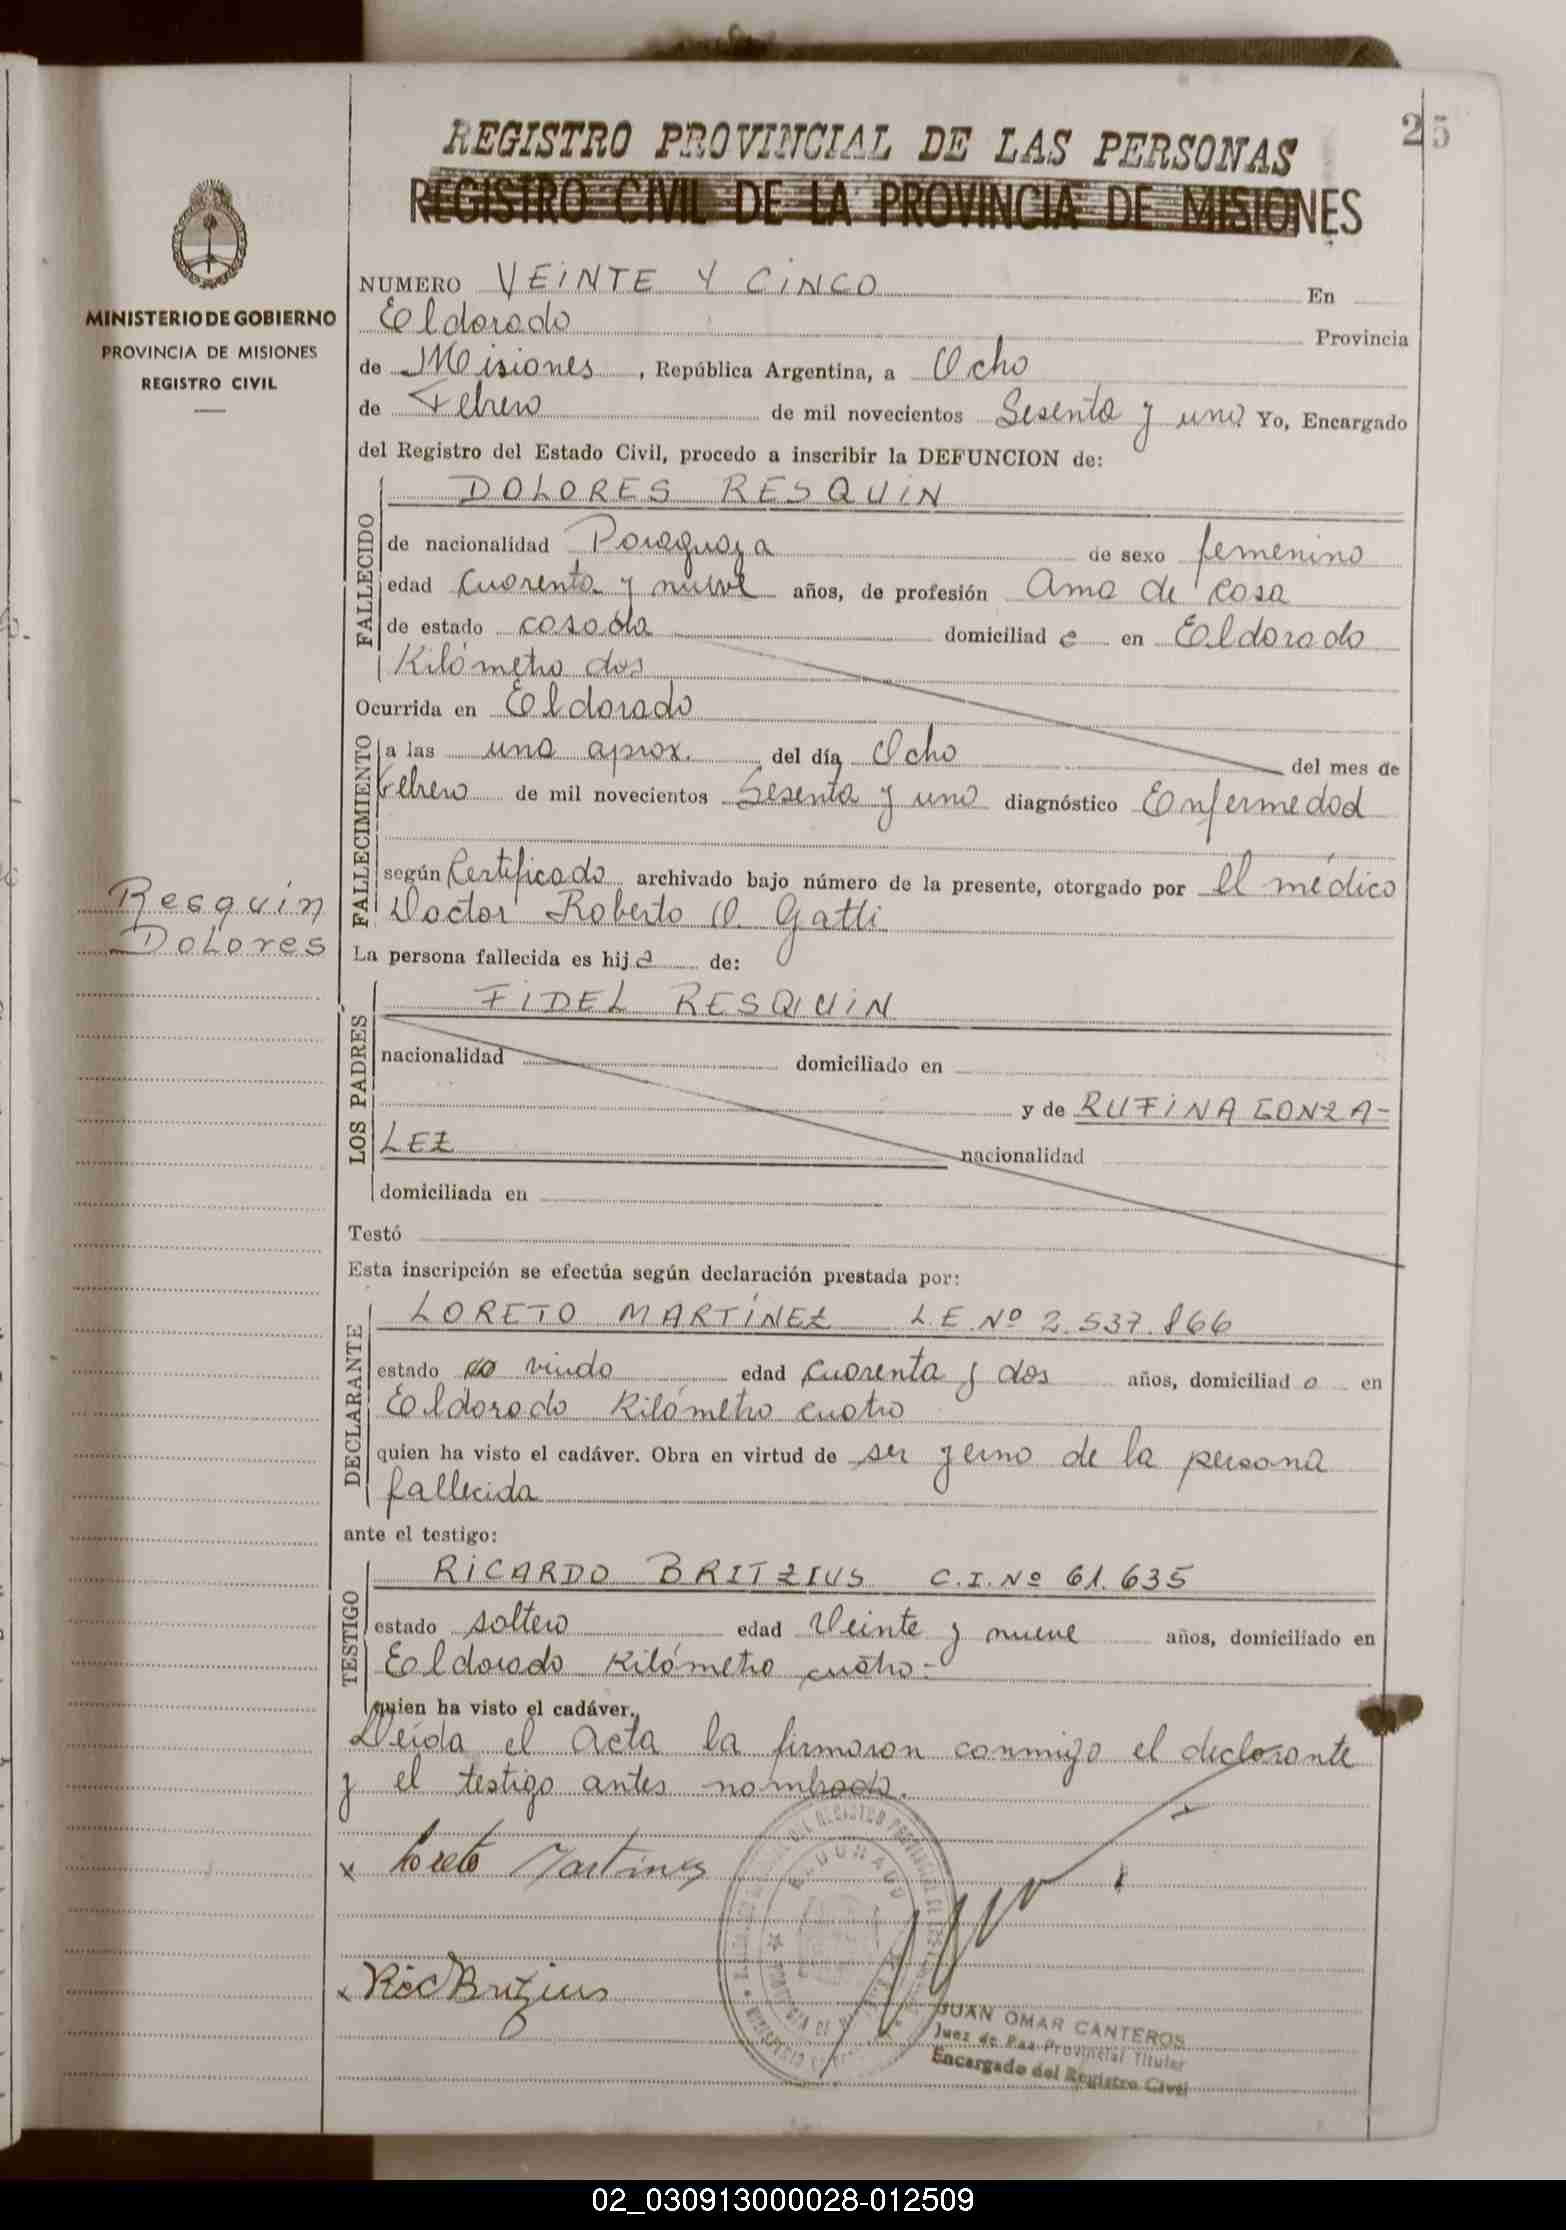 25
REGISTRO PROVINCIAL DE LAS PERSONAS
REGISTRO CIVIL DE LA PROVINCIA DE MISIONES
MINISTERIO DE GOBIERNO
PROVINCIA DE MISIONES
REGISTRO CIVIL
NUMERO VEINTE Y CINCO En
Eldorado Provincia
de Misiones, República Argentina, a Ocho
de Febrero de mil novecientos Sesenta y uno Yo, Encargado
del Registro del Estado Civil, procedo a inscribir la DEFUNCION de:
FALLECIDO
DOLORES RESQUIN
de nacionalidad Paraguaya de sexo femenino
edad cuarenta y nueve años, de profesión Ama de casa
de estado casada domiciliad a en Eldorado
Kilómetro dos
Ocurrida en Eldorado
FALLECIMIENTO
a las una aprox. del día Ocho del mes de
Febrero de mil novecientos Sesenta y uno diagnóstico Enfermedad
según Certificado archivado bajo número de la presente, otorgado por el médico
Doctor Roberto O. Gatti
Resquin
Dolores
La persona fallecida es hija de:
LOS PADRES
FIDEL RESQUIN
nacionalidad domiciliado en
y de RUFINA GONZA-
LEZ nacionalidad
domiciliada en
Testó
Esta inscripción se efectúa según declaración prestada por:
DECLARANTE
LORETO MARTÍNEZ L.E. Nº 2.537.866
estado viudo edad cuarenta y dos años, domiciliad o en
Eldorado Kilómetro cuatro
quien ha visto el cadáver. Obra en virtud de ser yerno de la persona
fallecida
ante el testigo:
TESTIGO
RICARDO BRITZIUS C.I. Nº 61.635
estado soltero edad Veinte y nueve años, domiciliado en
Eldorado Kilómetro cuatro.-
quien ha visto el cadáver.
Leída el acta la firmaron conmigo el declarante
y el testigo antes nombrado.
x Loreto Martinez
x Ric Britzius
ELDORADO
JUAN OMAR CANTEROS
Juez de Paz Provincial Titular
Encargado del Registro Civil
02_030913000028-012509